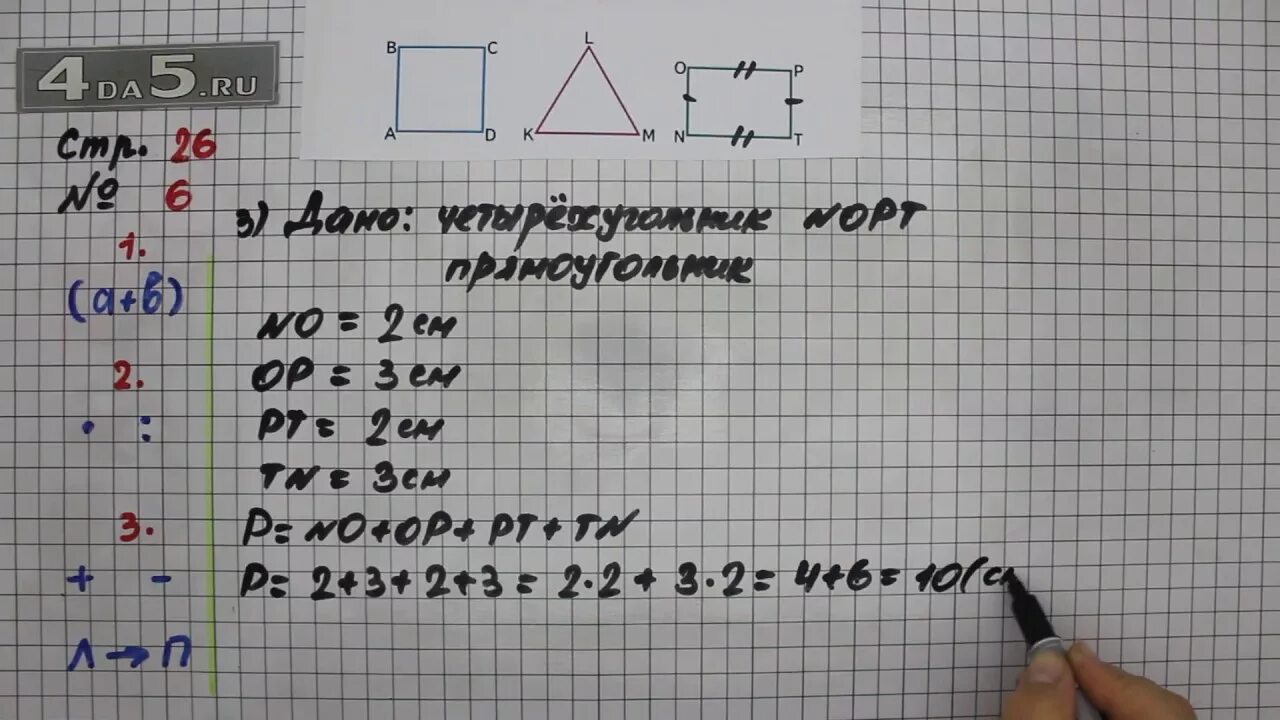 4DA5.RU
B C
A D
L
K M
O P
N T
Стр. 26
№ 6
1.
(а+в)
2.
· :
3.
+ -
Л → П
3) Дано: четырёхугольник NOPT
прямоугольник
NO = 2 см
OP = 3 см
PT = 2 см
TN = 3 см
P = NO + OP + PT + TN
P = 2 + 3 + 2 + 3 = 2 · 2 + 3 · 2 = 4 + 6 = 10 (с